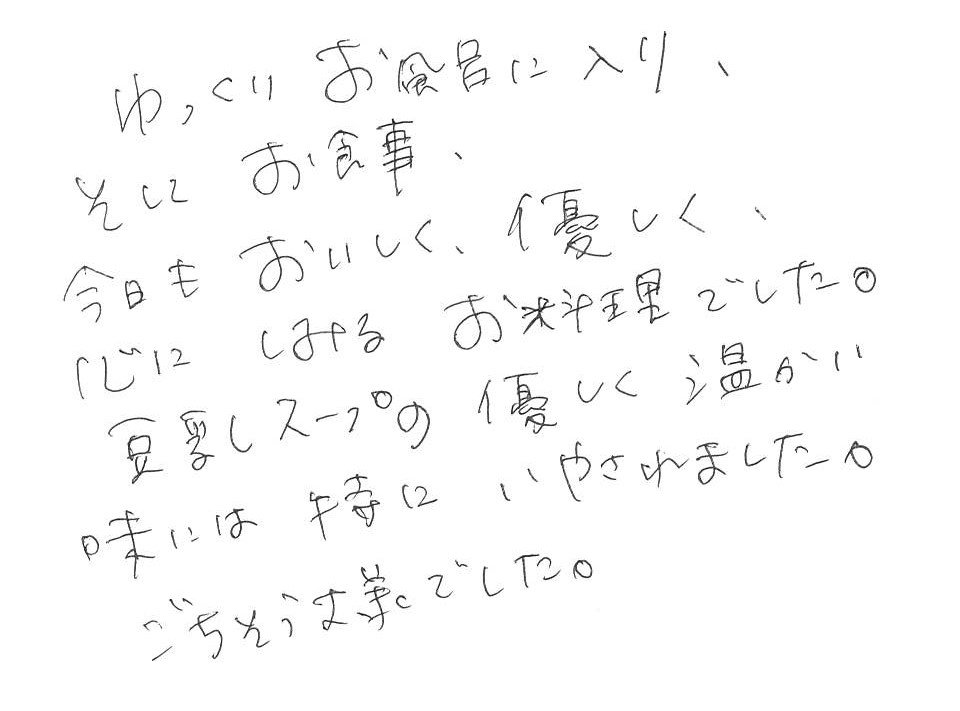 ゆっくりお風呂に入り、
そしてお食事、
今日もおいしく、優しく、
心にしみるお料理でした。
豆乳スープの優しく温かい
味には特にいやされました。
ごちそう様でした。